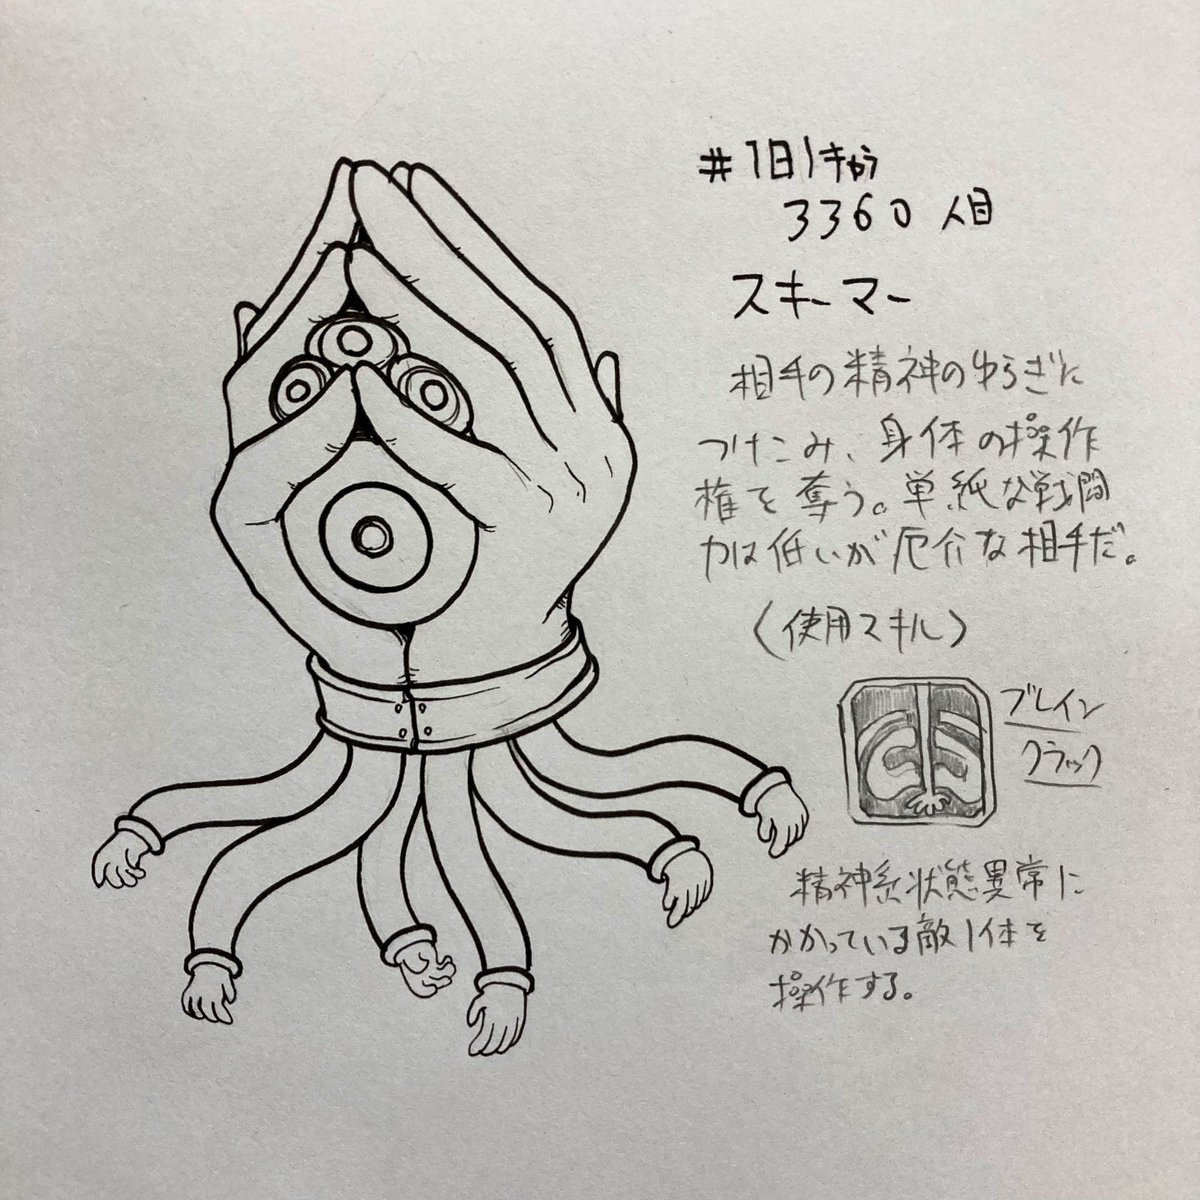 #1日1きゃら
3360人目
スキーマー
相手の精神のゆらぎに
つけこみ、身体の操作
権を奪う。単純な戦闘
力は低いが厄介な相手だ。
〈使用スキル〉
ブレイン
クラック
精神系状態異常に
かかっている敵1体を
操作する。